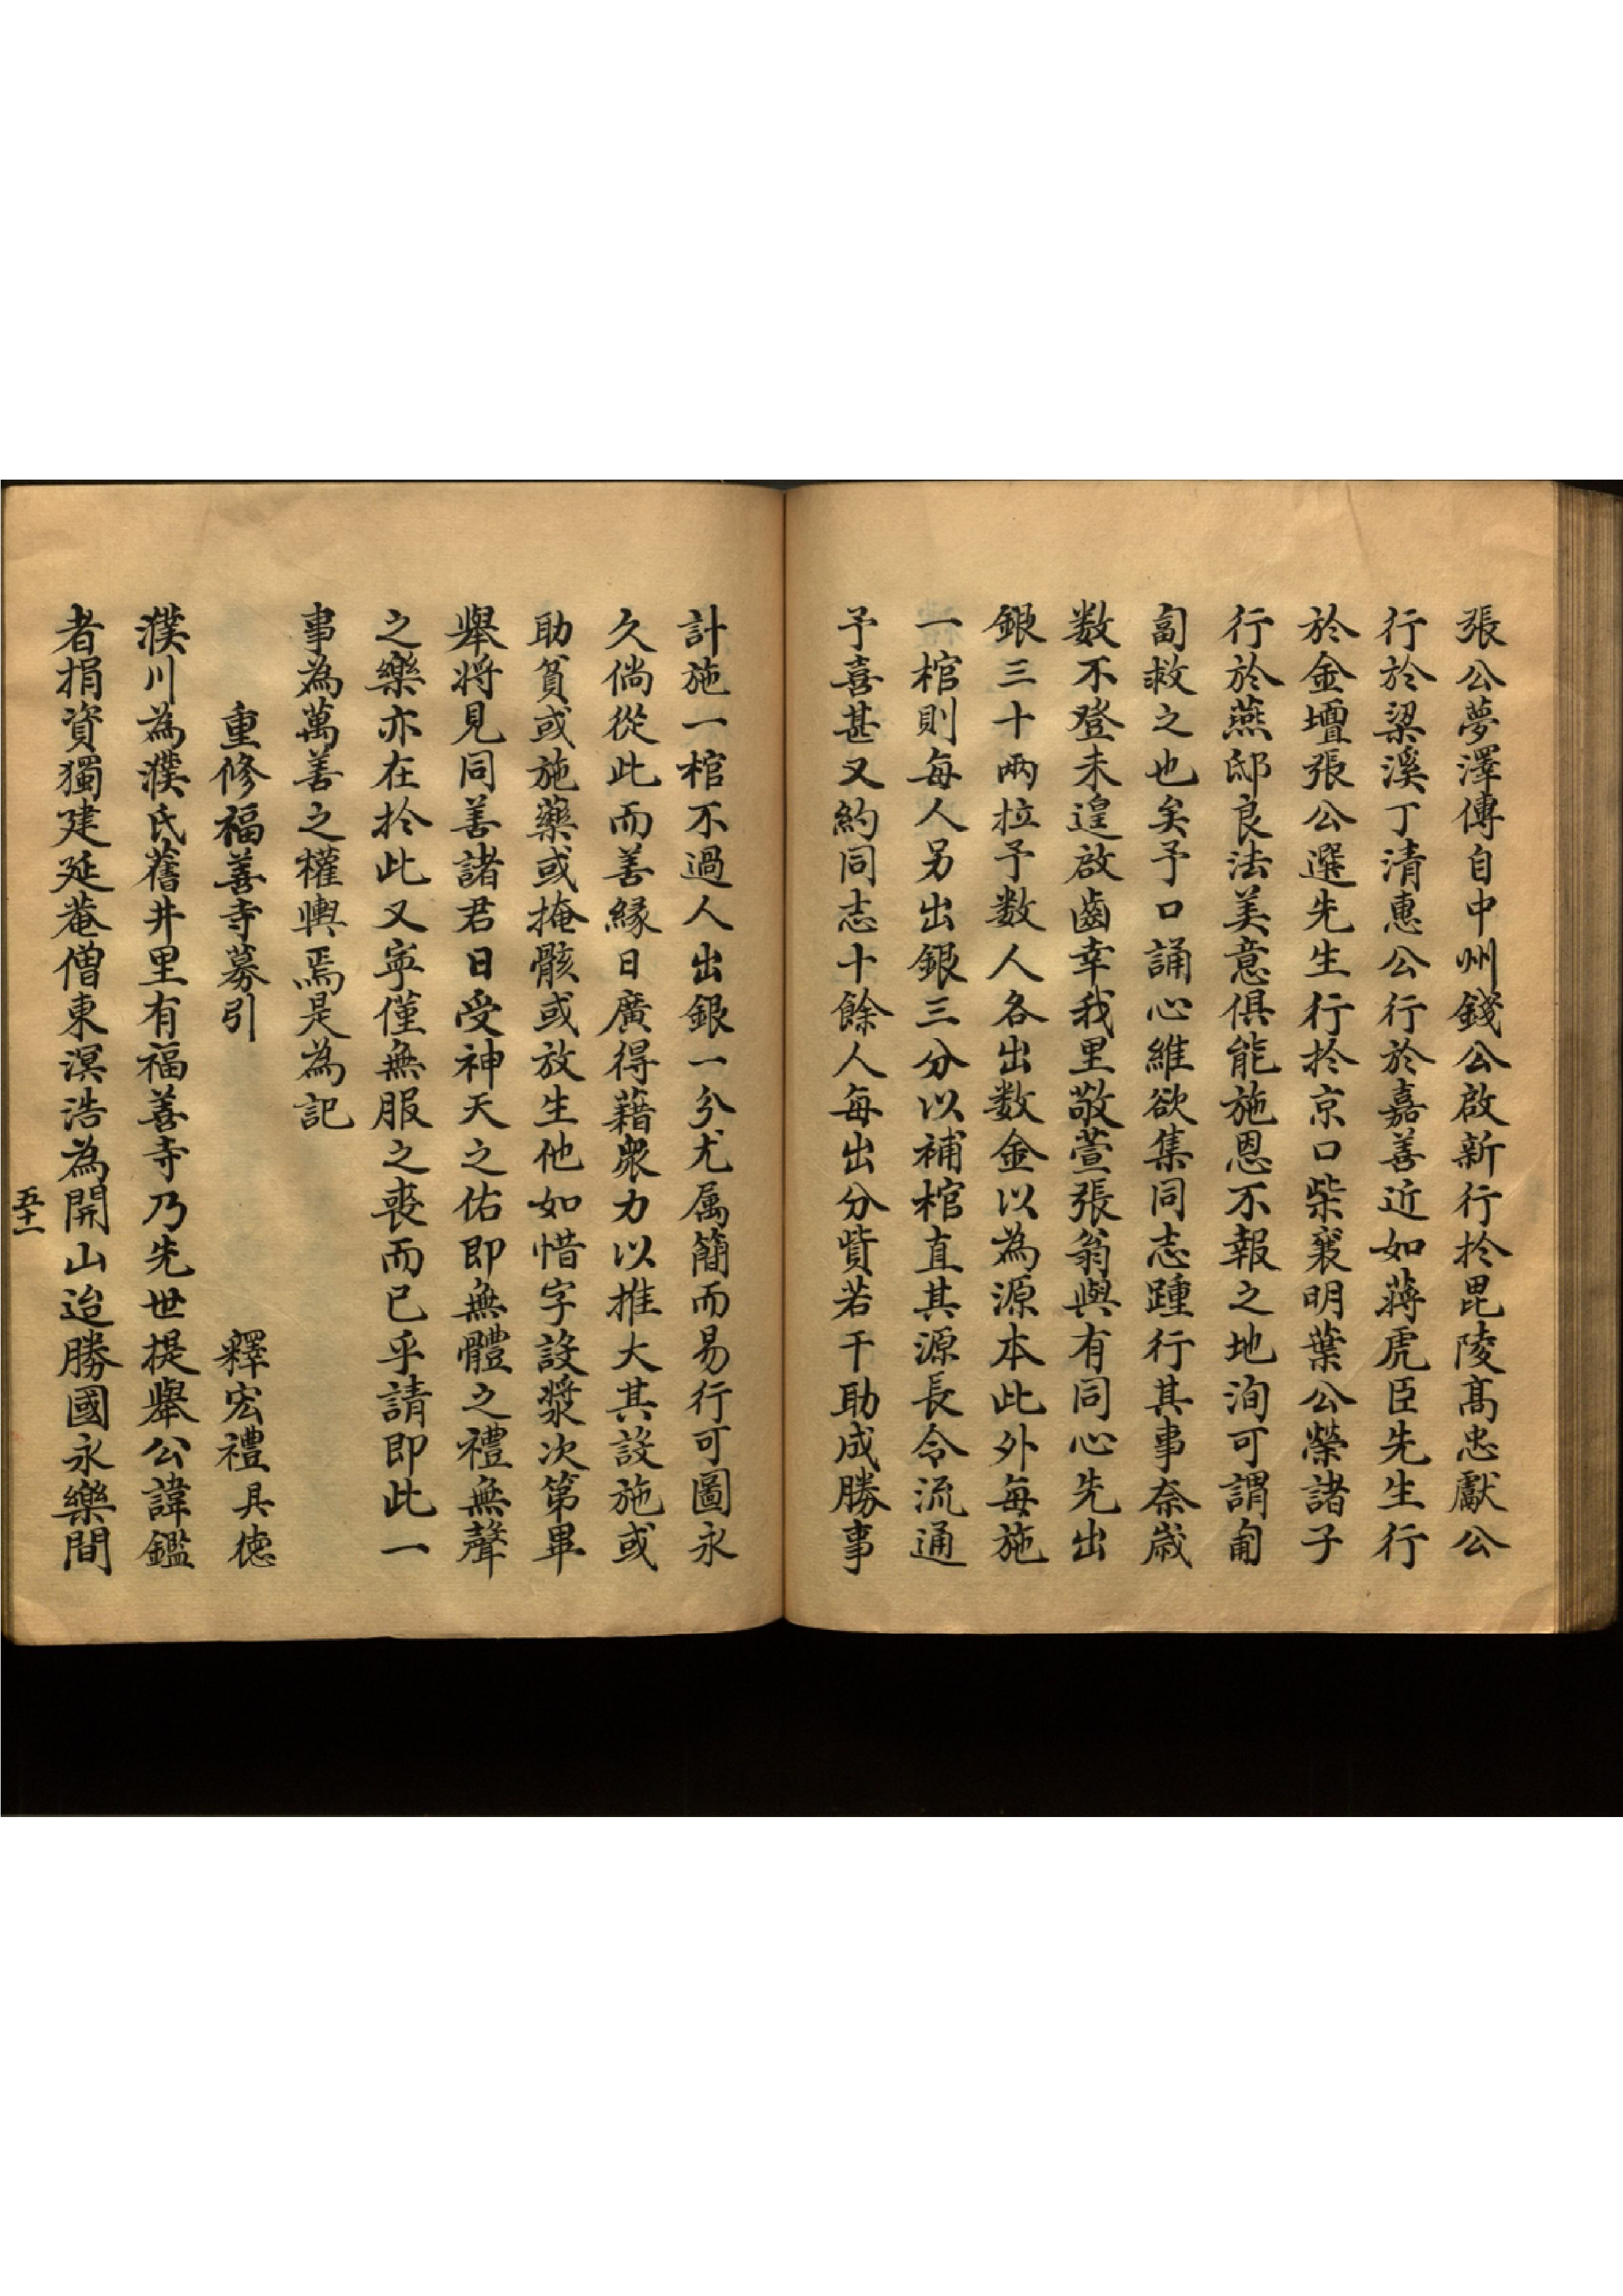 張公夢澤傳自中州錢公啟新行於毘陵髙忠獻公
行於梁溪丁清惠公行於嘉善近如蔣虎臣先生行
於金壇張公選先生行於京口柴襄明葉公榮諸子
行於燕邸良法美意俱能施恩不報之地洵可謂匍
匐救之也矣予口誦心維欲集同志踵行其事奈歲
数不登未遑啟齒幸我里敬萱張翁與有同心先出
銀三十兩拉予数人各出数金以為源本此外每施
一棺則每人另出銀三分以補棺直其源長令流通
予喜甚又約同志十餘人每出分貲若干助成勝事
計施一棺不過人出銀一分尤属簡而易行可圖永
久倘從此而善縁日廣得藉衆力以推大其設施或
助貧或施藥或掩骸或放生他如惜字設漿次第畢
舉将見同善諸君日受神天之佑即無體之禮無聲
之樂亦在於此又寧僅無服之喪而已乎請即此一
事為萬善之權輿焉是為記
重修福善寺募引　　釋宏禮具德
濮川為濮氏舊井里有福善寺乃先世提舉公諱鑑
者捐資獨建延菴僧東溟浩為開山迨勝國永樂間
五十一